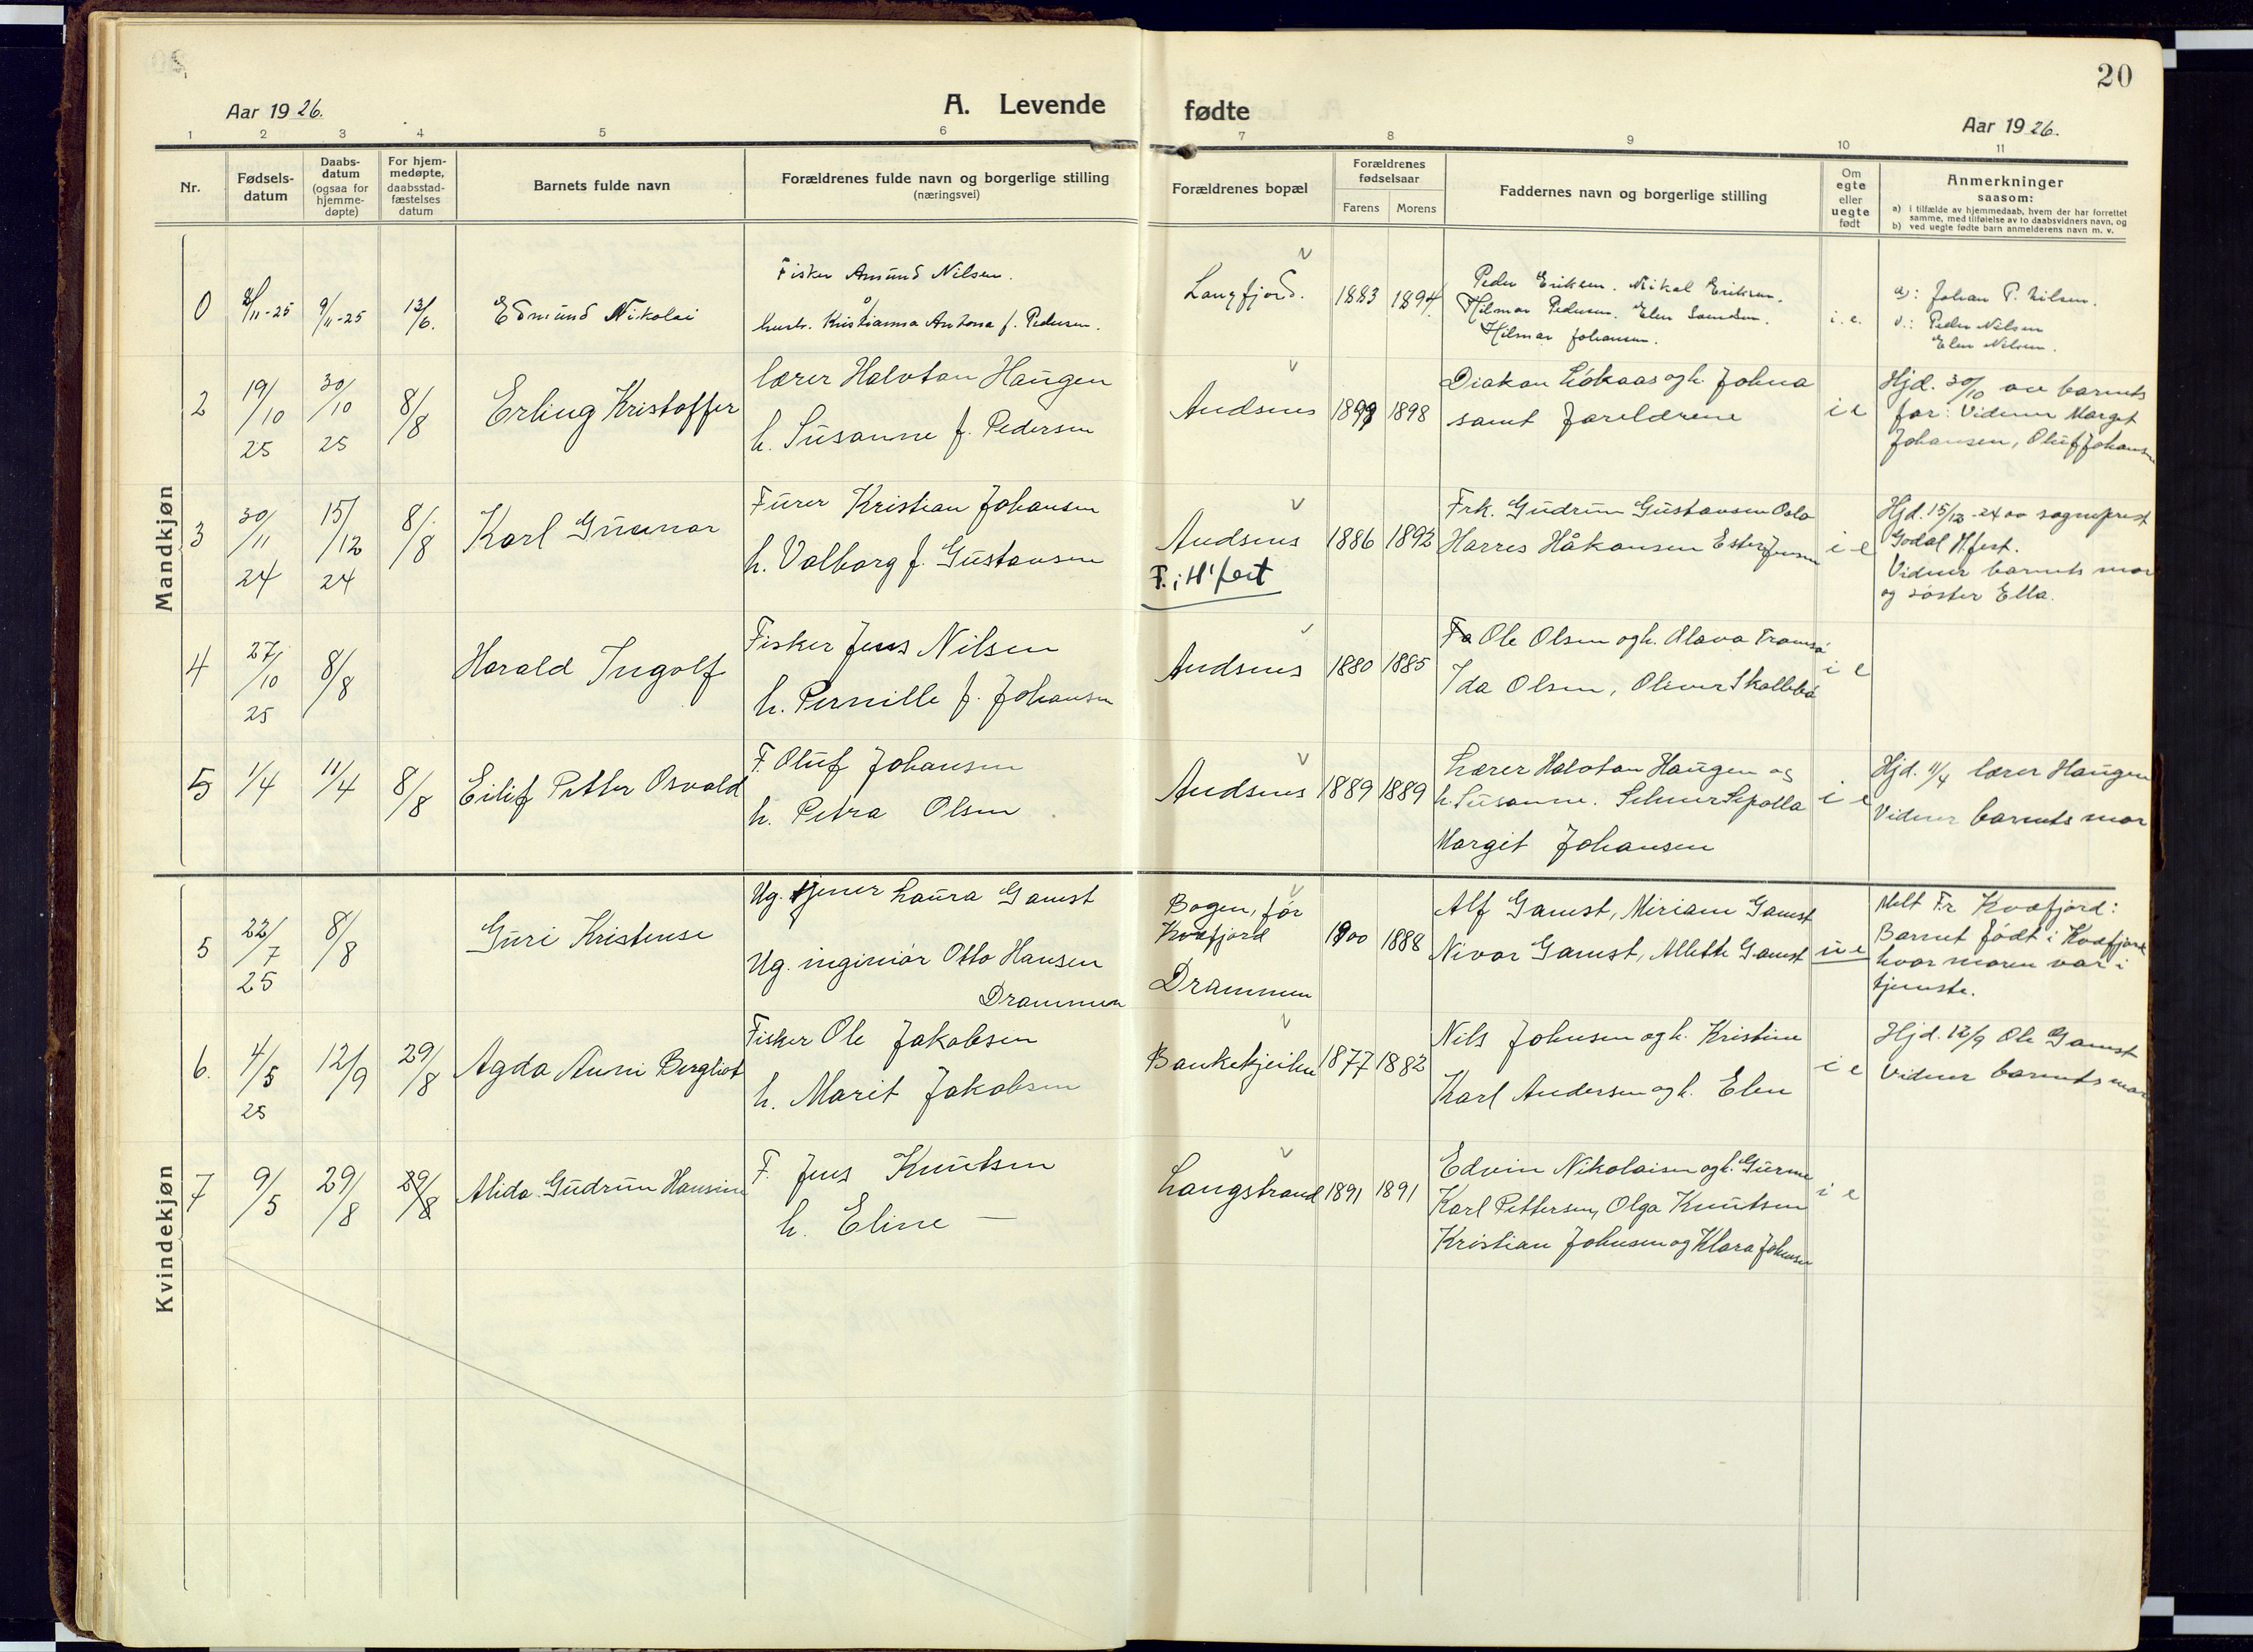 20
Aar 1926.
A. Levende fødte
Aar 1926.
1 2 3 4 5 6 7 8 9 10 11
Nr.
Fødsels-
datum
Daabs-
datum
(ogsaa for
hjemme-
døpte)
For hjem-
medøpte,
daabsstad-
fæstelses
datum
Barnets fulde navn
Forældrenes fulde navn og borgerlige stilling
(næringsvei)
Forældrenes bopæl
Forældrenes
fødselsaar
Farens Morens
Faddernes navn og borgerlige stilling
Om
egte
eller
uegte
født
Anmerkninger
saasom:
a) i tilfælde av hjemmedaab, hvem der har forrettet
samme, med tilføielse av to daabsvidners navn, og
b) ved uegte fødte barn anmelderens navn m. v.
Mandkjøn
0
8/11-25
9/11-25
13/6.
Edmund Nikolai
Fisker Amund Nilsen.
o/
hustr. Kristianna Antona f. Pedersen.
Langfjord.
1883
1894
Peder Eriksen. Mikal Eriksen.
Hilmar Pedersen. Elen Samdsen.
Hilmar Johansen.
i. e.
d: Johan P. Nilsen.
v.: Peder Nilsen
Elen Nilsen.
2
19/10
25
30/10
25
8/8
Erling Kristoffer
lærer Halvtan Haugen
h. Susanne f. Pedersen
Andsnes
1899
1898
Diakon Løkaas og h. Johna
samt foreldrene
i e
Hjd. 30/10 av barnets
far: Vidner Marget
Johansen, Oluf Johansen
3
30/11
24
15/12
24
8/8
Karl Gunnar
Furer Kristian Johansen
h. Valborg f. Gustavsen
Andsnes
F. i H'fest
1886
1892
Frk. Gudrun Gustavsen Oslo
Harres Håkansen Ester Jensen
i e
Hjd. 15/12-24 av sogneprest
Godal H.fest.
Vidner barnets mor
og søster Ella.
4
27/10
25
8/8
Harald Ingolf
Fisker Jens Nilsen
h. Pernille f. Johansen
Andsnes
1880
1885
Ole Olsen og h. Alava Tromsø
Ida Olsen, Oliver Skallebø
i e
5
1/4
11/4
8/8
Eilif Petter Osvald
F. Oluf Johansen
h. Petra Olsen
Andsnes
1889
1889
Lærer Halvtan Haugen og
h. Susanne. Selmer Sepolla
Margit Johansen
i e
Hjd. 11/4 lærer Haugen
Vidner barnets mor
Kvindekjøn
5
22/7
25
8/8
Guri Kristense
Ug. tjener Laura Gamst
Ug. ingeniør Otto Hansen
Drammen
Bogen, før
Kvæfjord
Drammen
1900
1888
Alf Gamst, Miriam Gamst
Nivar Gamst, Allette Gamst
u e
Melt Fr Kvæfjord:
Barnet født i Kvæfjord
hvor moren var i
tjeneste.
6.
4/5
25
12/9
29/8
Agda Anni Bergliot
Fisker Ole Jakobsen
h. Marit Jakobsen
Bankekjeilen
1877
1882
Nils Johnsen og h. Kristine
Karl Andersen og h. Elen
i e
Hjd. 12/9 Ole Gamst
Vidner barnets mor
7
9/5
29/8
29/8
Alida Gudrun Hansine
F. Jens Knutsen
h. Eline —
Langstrand
1891
1891
Edvin Nikolaisen og h. Gurine
Karl Pettersen, Olga Knutsen
Kristian Johnsen og Klara Johnsen
i e